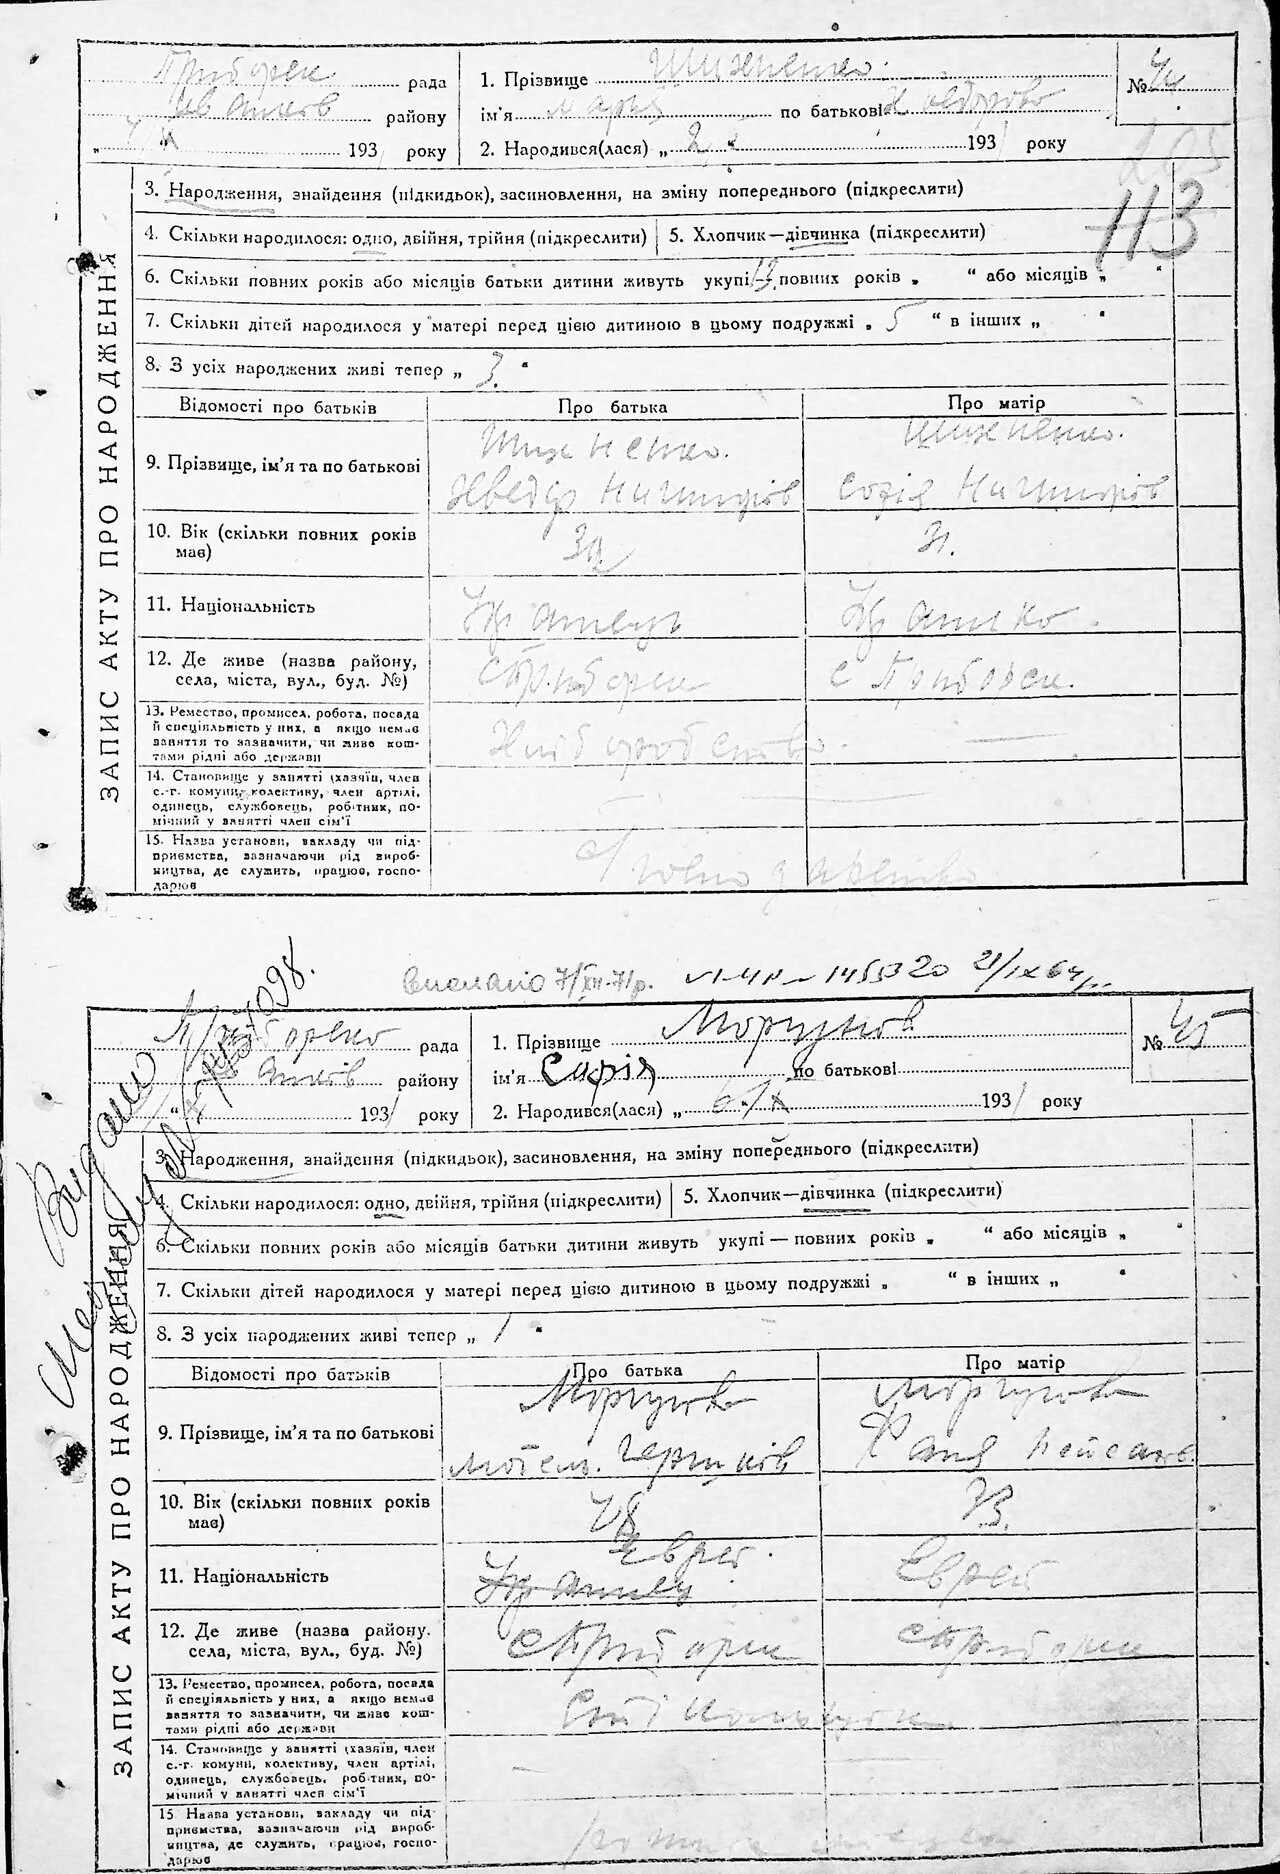 Приборська рада
Іванків району
193 1 року
1. Прізвище Шихненко
ім'я Марія по батькові Хведорово
2. Народився(лася) „ 2 “ 193 року
№ 44
113
ЗАПИС АКТУ ПРО НАРОДЖЕННЯ
3. Народження, знайдення (підкидьок), засиновлення, на зміну попереднього (підкреслити)
4. Скільки народилося: одно, двійня, трійня (підкреслити) 5. Хлопчик—дівчинка (підкреслити)
6. Скільки повних років або місяців батьки дитини живуть укупі 12 повних років „ “ або місяців „ “
7. Скільки дітей народилося у матері перед цією дитиною в цьому подружжі „ 5 “ в інших „ “
8. З усіх народжених живі тепер „ 3 “
Відомості про батьків Про батька Про матір
9. Прізвище, ім'я та по батькові
Шихненко. Шихненко.
Хведір Никипорів Софія Никипорів
10. Вік (скільки повних років має) 32 31.
11. Національність Українець Українко.
12. Де живе (назва району, села, міста, вул., буд. №) с Приборськ с Приборськ.
13. Ремество, промисел, робота, посада й спеціяльність у них, а якщо немає заняття то зазначити, чи живе коштами рідні або держави
Хліборобство
14. Становище у занятті (хазяїн, член с.-г. комуни, колективу, член артілі, одинець, службовець, робітник, помічний у занятті член сім'ї
15. Назва установи, закладу чи підприємства, зазначаючи рід виробництва, де служить, працює, господарює
Выслано 7/XII-71р. 145320 21/IX 64р.
Видано
Приборсько рада
Іванків району
193 1 року
1. Прізвище Моргунов
ім'я Сарія по батькові
2. Народився(лася) „ 6/X 193 1 року
№ 45
ЗАПИС АКТУ ПРО НАРОДЖЕННЯ
3. Народження, знайдення (підкидьок), засиновлення, на зміну попереднього (підкреслити)
4. Скільки народилося: одно, двійня, трійня (підкреслити) 5. Хлопчик—дівчинка (підкреслити)
6. Скільки повних років або місяців батьки дитини живуть укупі — повних років „ “ або місяців „ “
7. Скільки дітей народилося у матері перед цією дитиною в цьому подружжі „ “ в інших „ “
8. З усіх народжених живі тепер „ 1 “
Відомості про батьків Про батька Про матір
9. Прізвище, ім'я та по батькові
Моргунов Моргунова
Мотель
10. Вік (скільки повних років має) 28 23.
11. Національність
Українец Еврей. Еврей
12. Де живе (назва району, села, міста, вул., буд. №) с Приборськ с Приборськ
13. Ремество, промисел, робота, посада й спеціяльність у них, а якщо немає заняття то зазначити, чи живе коштами рідні або держави
14. Становище у занятті (хазяїн, член с.-г. комуни, колективу, член артілі, одинець, службовець, робітник, помічний у занятті член сім'ї
15 Назва установи, закладу чи підприємства, зазначаючи рід виробництва, де служить, працює, господарює